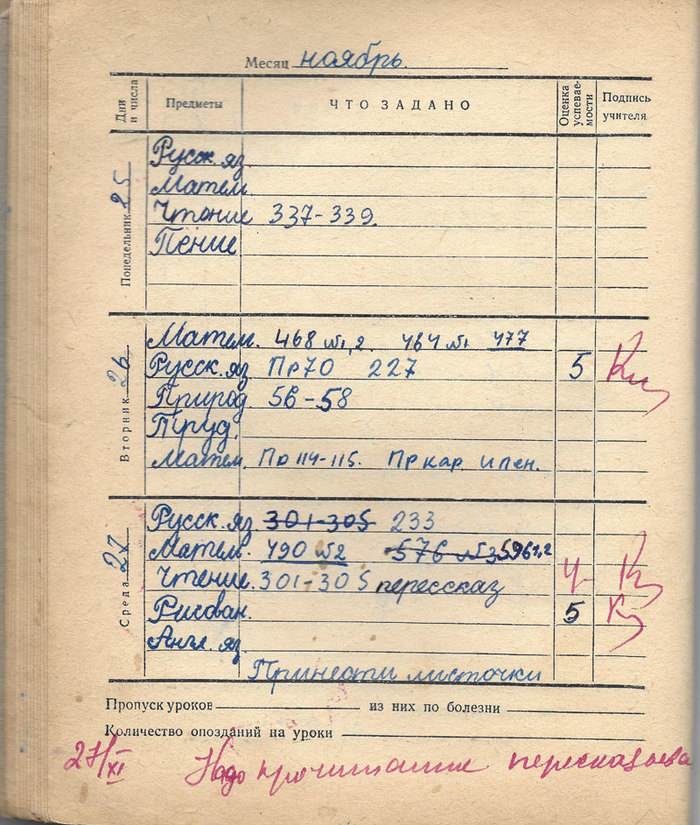 Месяц ноябрь.
Дни и числа Предметы ЧТО ЗАДАНО Оценка успеваемости Подпись учителя
Понедельник 25
Русск. яз.
Матем.
Чтение 337-339.
Пение
Вторник 26
Матем. 468 №1,2. 464 №1 477
Русск. яз. Пр70 227 5
Природ. 56-58
Труд.
Матем. Пр 114-115. Пр кар и пен.
Среда 27
Русск. яз. 301-305 233
Матем. 490 №2 576 №3 596 1,2
Чтение. 301-305 перессказ 4-
Рисован. 5
Англ. яз
Принести листочки
Пропуск уроков из них по болезни
Количество опозданий на уроки
27/XI Надо прочитанное